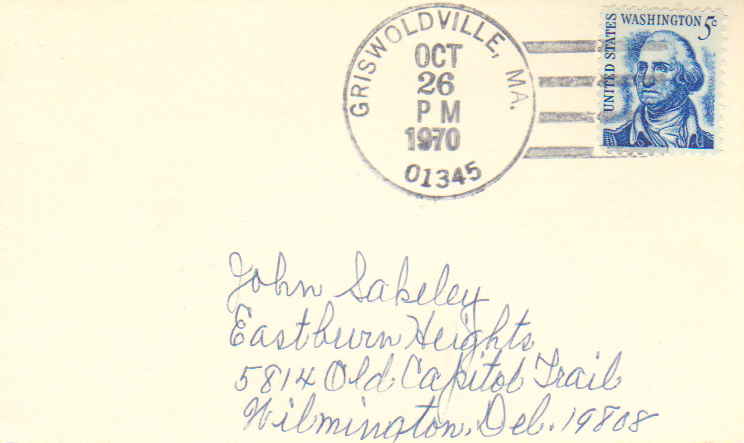 GRISWOLDVILLE, MA.
OCT
26
PM
1970
01345
UNITED STATES
WASHINGTON 5c
John Sakeley
Eastburn Heights
5814 Old Capitol Trail
Wilmington, Del. 19808